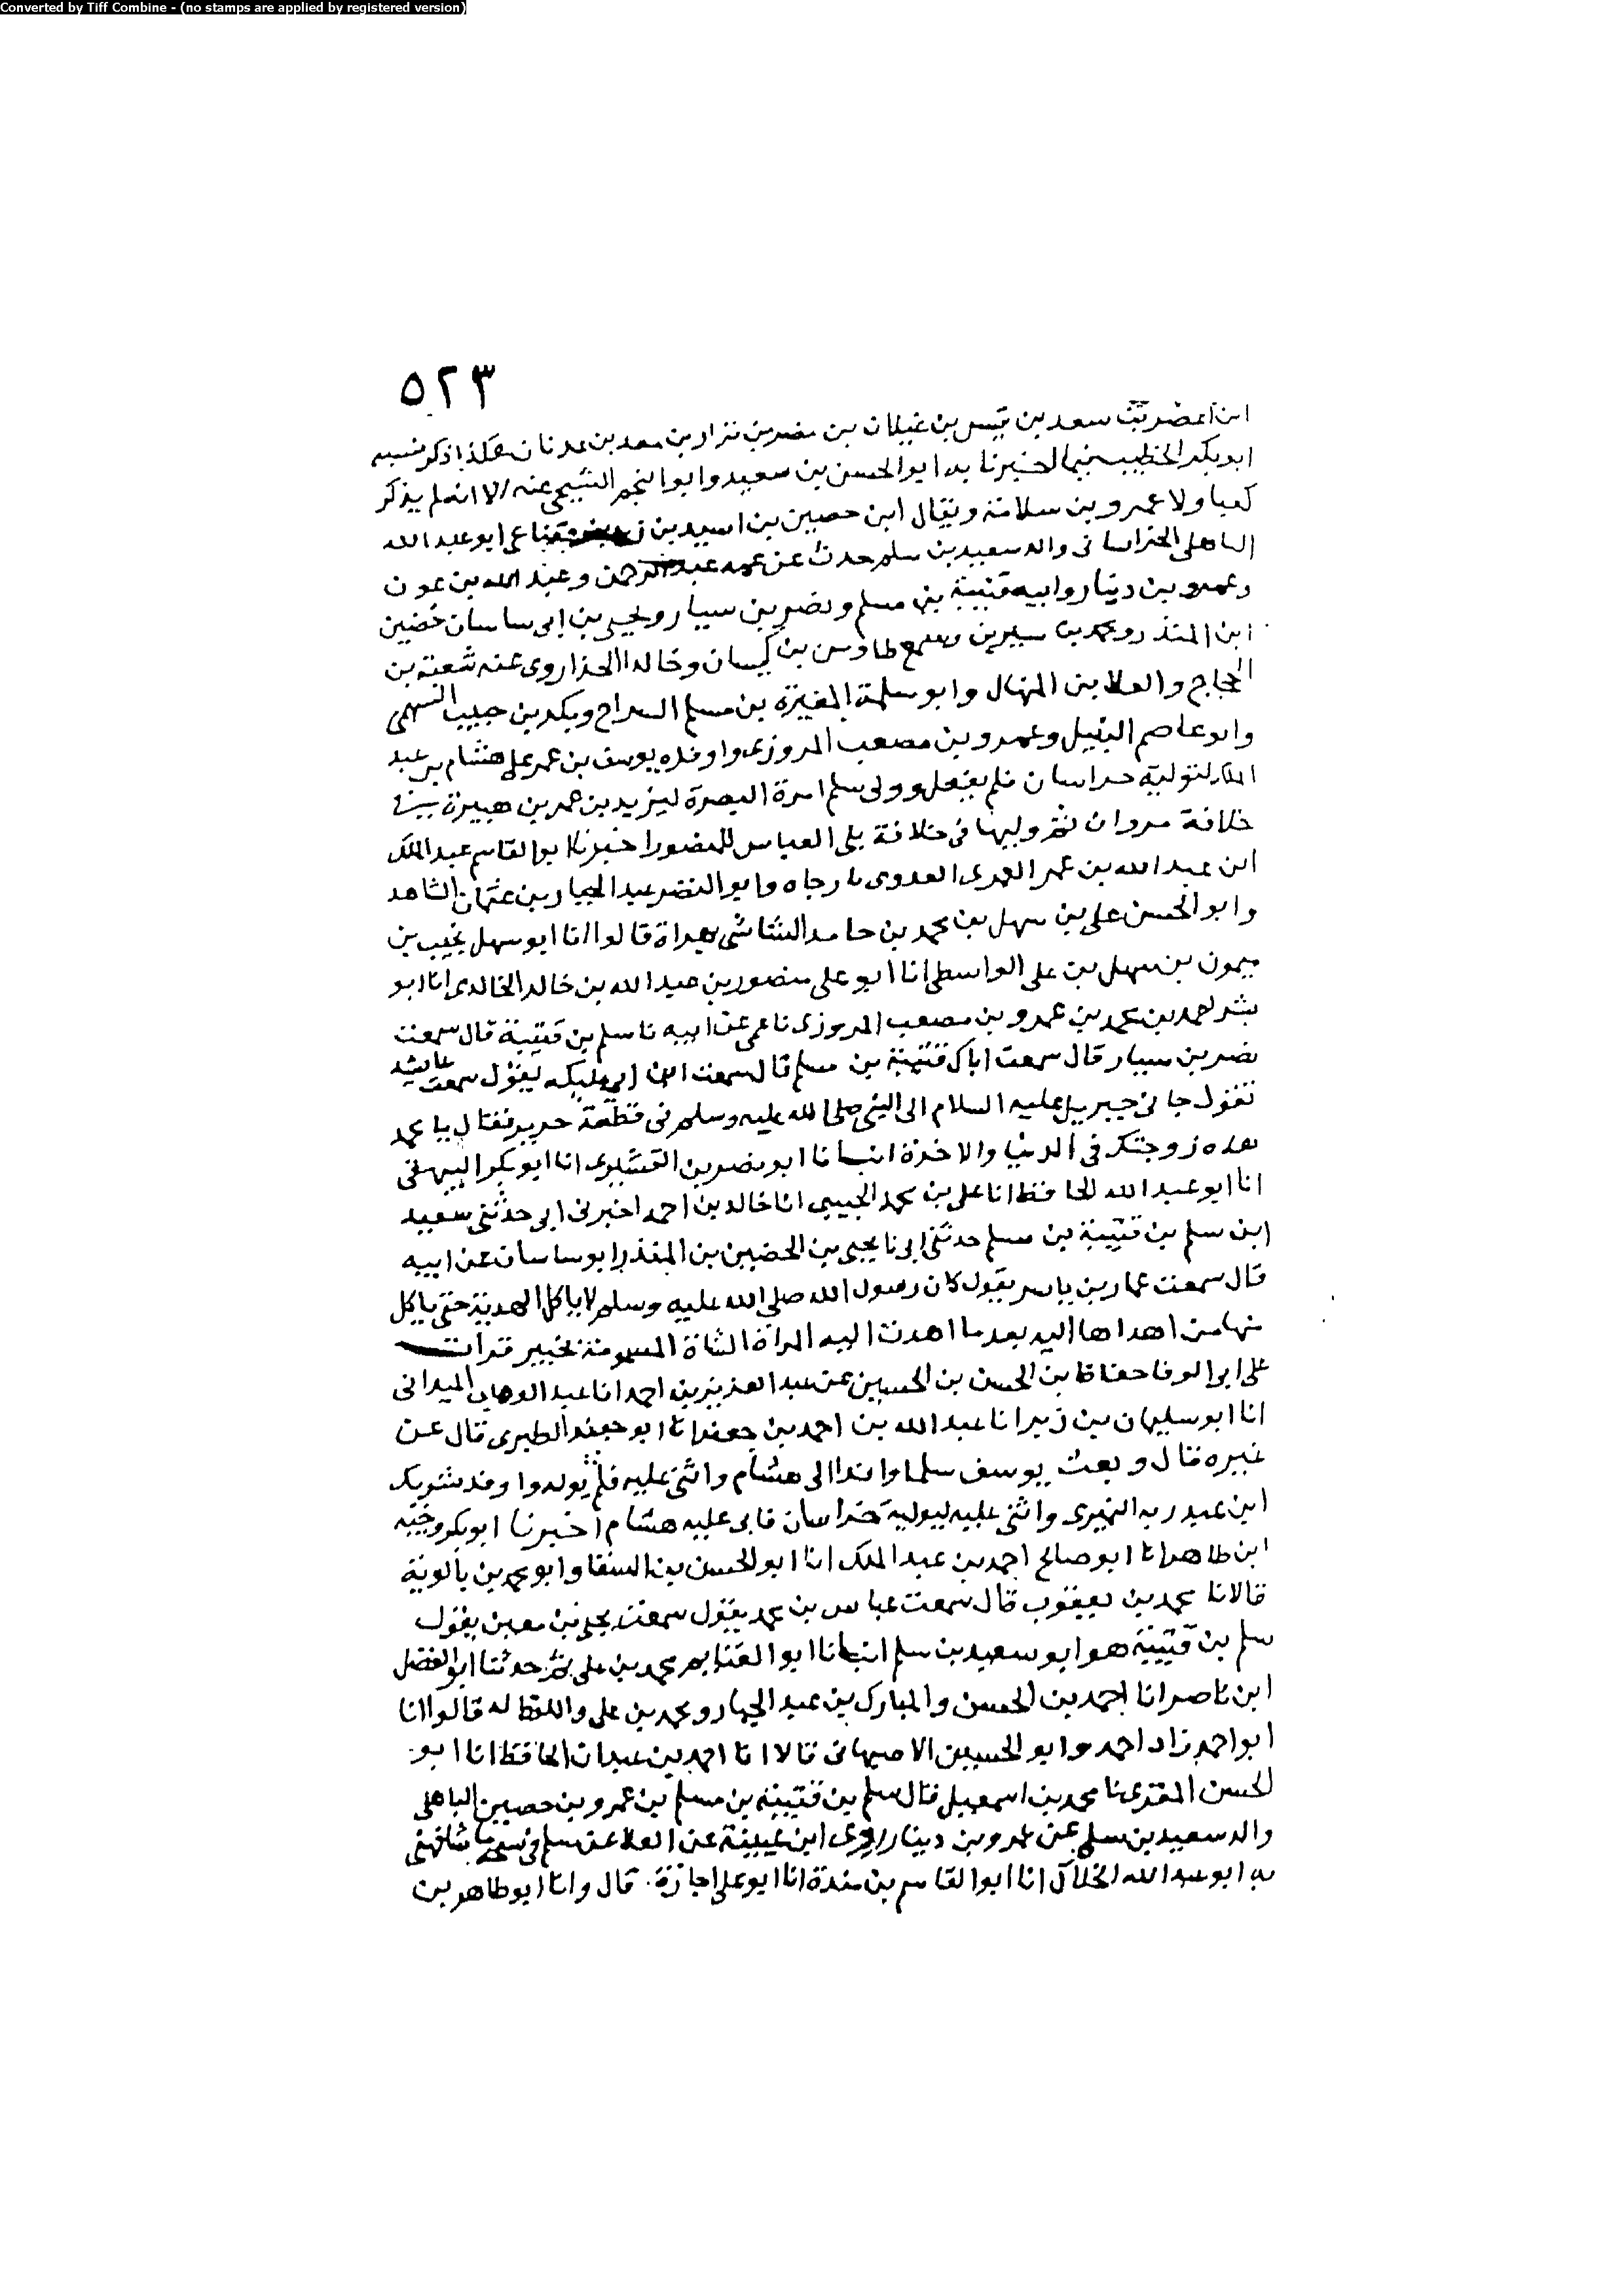 Converted by Tiff Combine - (no stamps are applied by registered version)
٥٢٣
ابن اعصر بن سعد بن قيس بن غيلان بن مضر بن نزار بن معد بن عدنان هكذا ذكر نسبه
ابو بكر الخطيب فيما اخبرنا به ابو الحسن بن سعيد وابو النجم الشيحى عنه الا انه لم يذكر
كعبا ولا عمرو بن سلامة ويقال ابن حصين بن اسيد بن زيد بن قضاعى ابو عبد الله
الباهلى الخراسانى والد سعيد بن سلم حدث عن عمه عبد الرحمن وعبد الله بن عون
وعمرو بن دينار وابيه قتيبة بن مسلم ونصر بن سيار ويحيى بن ابى ساسان حضين
ابن المنذر ومحمد بن سيرين وسمع طاوس بن كيسان وخالد الحذا روى عنه شعبة بن
الحجاج والعلا بن المنهال وابو سلمة المغيرة بن مسلم السراج وبكر بن حبيب السهمى
وابو عاصم النبيل وعمرو بن مصعب المروزى واوفده يوسف بن عمر على هشام بن عبد
الملك لتوليه خراسان فلم يفعل وولى سلم امرة البصرة ليزيد بن عمر بن هبيرة فى
خلافة مروان ثم وليها فى خلافة بنى العباس للمنصور اخبرنا ابو القاسم عبد الملك
ابن عبد الله بن عمر العمرى العدوى بارجاه وابو النضر عبد الجبار بن عثمان الشاهد
وابو الحسن على بن سهل بن محمد بن حامد الشاشى بهراة قالوا انا ابو سهل نجيب بن
ميمون بن سهل بن على الواسطى انا ابو على منصور بن عبد الله بن خالد الخالدى انا ابو
بشر احمد بن محمد بن عمرو بن مصعب المروزى نا عمى عن ابيه نا سلم بن قتيبة قال سمعت
نصر بن سيار قال سمعت اباك قتيبة بن مسلم قال سمعت ابن ابى مليكه يقول سمعت عايشه
تقول جانى جبريل عليه السلام الى النبى صلى الله عليه وسلم فى قطعة حرير فقال يا محمد
هذه زوجتك فى الدنيا والاخرة انبانا ابو نصر بن القشيرى انا ابو بكر البيهقى
انا ابو عبد الله الحافظ انا على بن محمد الحبيبى انا خالد بن احمد اخبرنى ابى حدثنى سعيد
ابن سلم بن قتيبة بن مسلم حدثنى ابى نا يحيى بن الحضين بن المنذر ابو ساسان عن ابيه
قال سمعت عمار بن ياسر يقول كان رسول الله صلى الله عليه وسلم لا ياكل الهدية حتى ياكل
منها من اهداها اليه بعد ما اهدت اليه المراة الشاة المسمومة بخيبر قرات
على ابى الوفا حفاظ بن الحسن بن الحسين عن عبد العزيز بن احمد انا عبد الوهاب الميدانى
انا ابو سليمان بن زبر انا عبد الله بن احمد بن جعفر انا ابو جعفر الطبرى قال عن
غيره قال وبعث يوسف سلما وافدا الى هشام واثنى عليه فلم يوله واوفد شريك
ابن عبد ربه النميرى واثنى عليه ليوليه خراسان فابى عليه هشام اخبرنا ابو بكر وجيه
ابن طاهر انا ابو صالح احمد بن عبد الملك انا ابو الحسن بن السقا وابو محمد بن بالوية
قالا نا محمد بن يعقوب قال سمعت عباس بن محمد يقول سمعت يحيى بن معين يقول
سلم بن قتيبة هو ابو سعيد بن سلم انبانا ابو الغنايم محمد بن على ثم حدثنا ابو الفضل
ابن ناصر انا احمد بن الحسن والمبارك بن عبد الجبار ومحمد بن على واللفظ له قالوا انا
ابو احمد زاد احمد وابو الحسين الاصبهانى قالا انا احمد بن عبدان الحافظ انا ابو
الحسن المقرى نا محمد بن اسمعيل قال سلم بن قتيبة بن مسلم بن عمرو بن حصين الباهلى
والد سعيد بن سلم عن عمرو بن دينار روى ابن عيينة عن العلا عن سلم شافهنى
به ابو عبد الله الخلال انا ابو القاسم بن مندة انا ابو على اجازة. قال وانا ابو طاهر بن